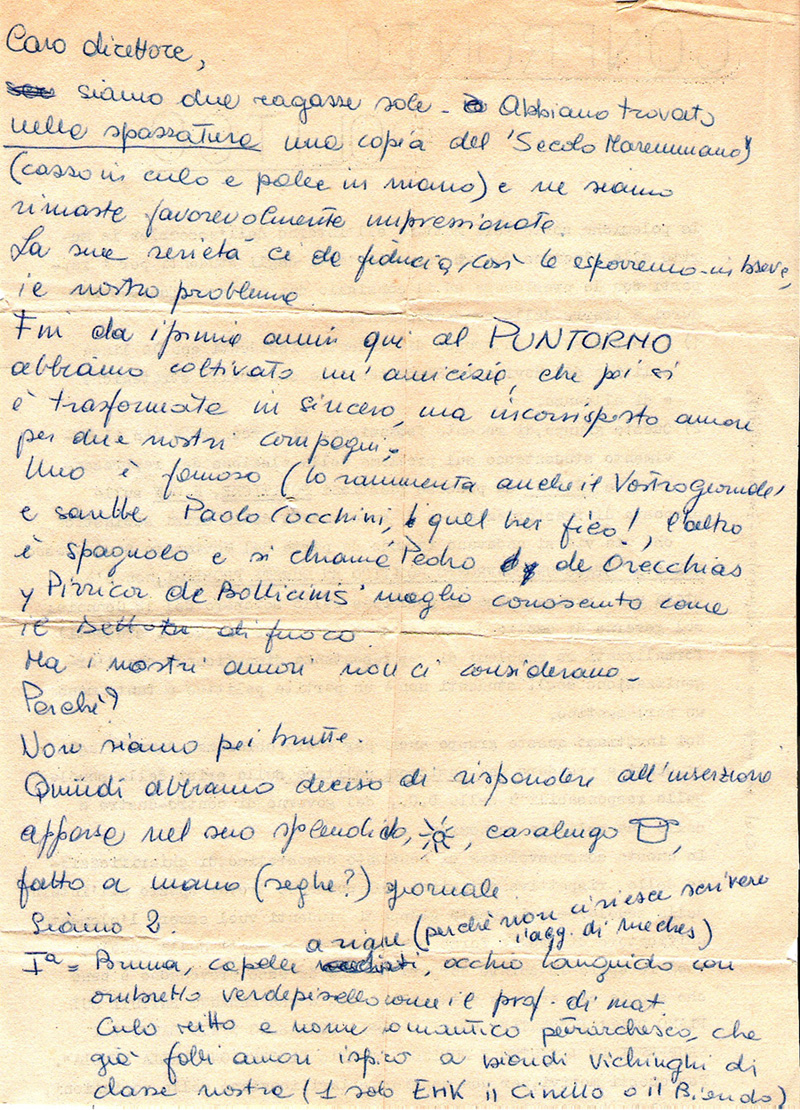 Caro direttore,
siamo due ragasse sole - Abbiamo trovato
nella spassatura una copia del 'Secolo Maremmano'
(casso in culo e palle in mano) e ne siamo
rimaste favorevolmente impressionate.
La sua serietà ci da fiducia, così le esporremo in breve,
il nostro problema.
Fin da i primi anni qui al PUNTORMO
abbiamo coltivato un'amicizia, che poi si
è trasformata in sincero, ma incorrisposto amore
per due nostri compagni;
Uno è famoso (lo rammenta anche il Vostro giornale)
e sarebbe Paolo Cocchini, quel her fico!, l'altro
è spagnolo e si chiama Pedro de Orecchias
y Pizzicor de Bollicinis' meglio conosciuto come
il di fuoco.
Ma i nostri amori non ci considerano -
Perché?
Noro siamo pei brutte.
Quindi abbiamo deciso di rispondere all'inserzione
apparsa nel suo splendido, casalingo,
fatto a mano (seghe?) giornale
Siamo 2.
a righe (perché non ci riesce scrivere
l'agg. di meches)
Iª = Bruna, capelli, occhio languido con
ombretto verdepisello come il prof. di mat.
Culo ritto e nome romantico petrarchesco, che
già folli amori ispirò a biondi vichinghi di
classe nostra (1 solo Erik il Cinello o il Biondo)